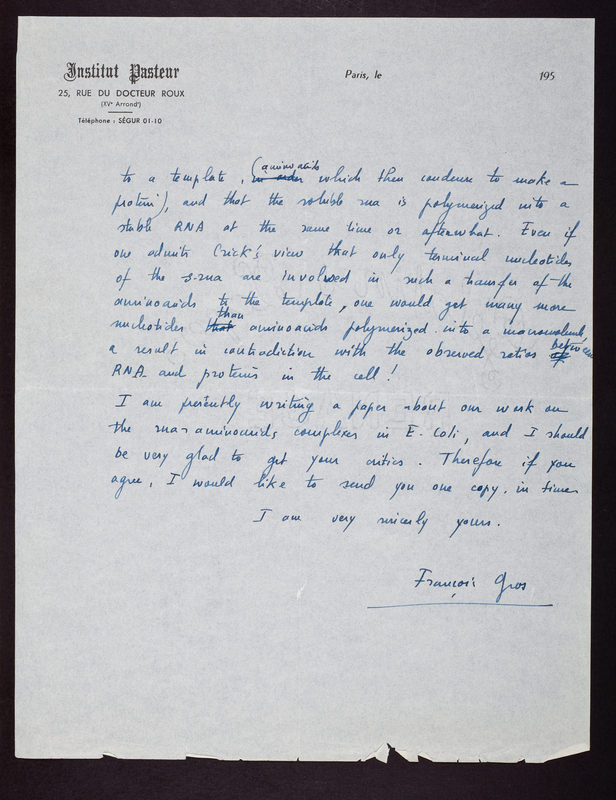 Institut Pasteur
25, RUE DU DOCTEUR ROUX
(XVe Arrondt)
Téléphone : SÉGUR 01-10
Paris, le 195
to a template, (aminoacids which then condense to make a
protein), and that the soluble rna is polymerized into a
stable RNA at the same time or afterwhat. Even if
one admits Crick's view that only terminal nucleotides
of the s-rna are involved in such a transfer of the
aminoacids to the template, one would get many more
nucleotides that than aminoacids polymerized into a macromolecule
a result in contradiction with the observed ratios of between
RNA and proteins in the cell!
I am presently writing a paper about our work on
the rna-aminoacids complexes in E. Coli, and I should
be very glad to get your critics. Therefore if you
agree, I would like to send you one copy, in time
I am very sincerly yours.
François Gros